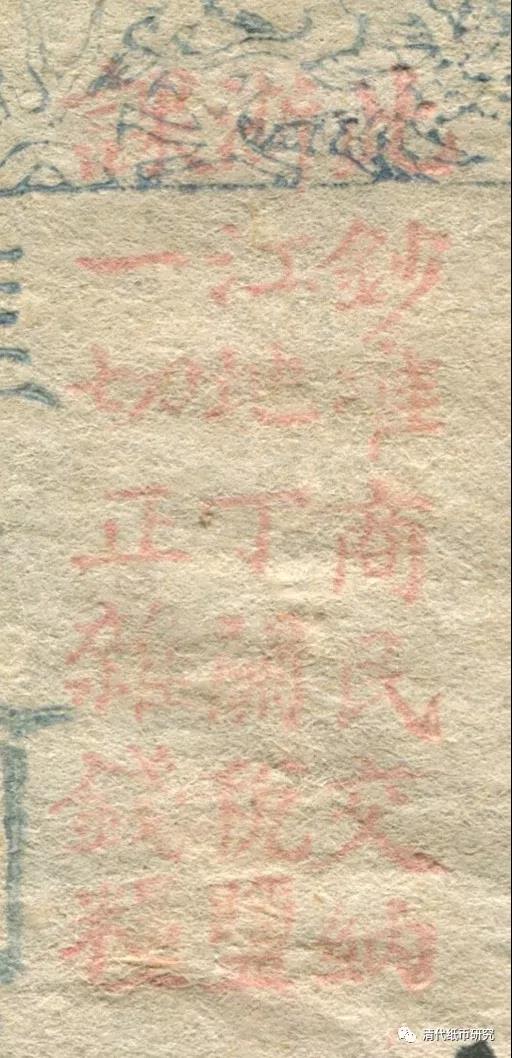 此鈔准商民交納
浙江地丁關稅鹽
課一切正雜錢糧
清代纸币研究